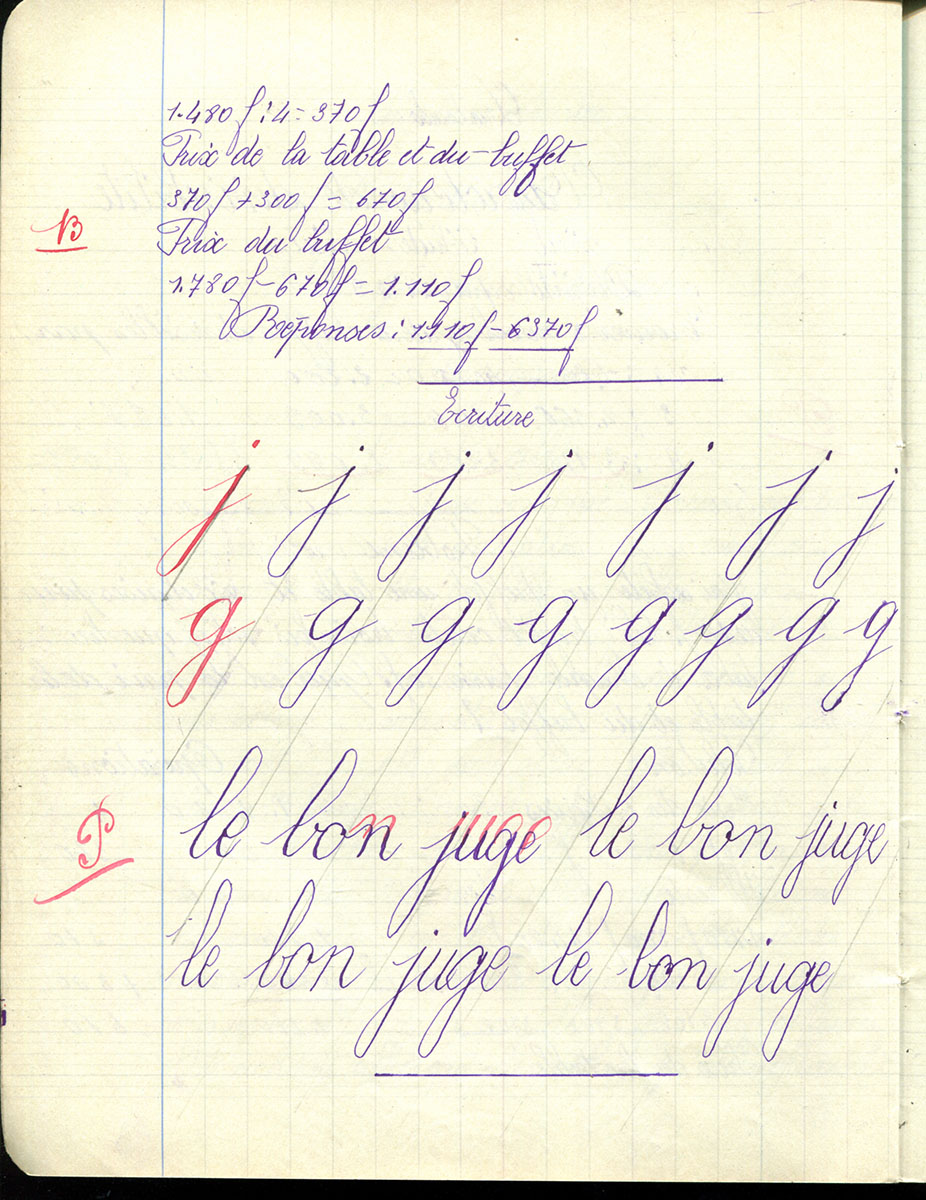 1.480f : 4 = 370f
Prix de la table et du buffet
370f + 300f = 670f
B
Prix du buffet
1.780f - 670f = 1.110f
Réponses : 1.110f - 370f
Ecriture
j j j j j j j
g g g g g g g g
le bon juge le bon juge
le bon juge le bon juge